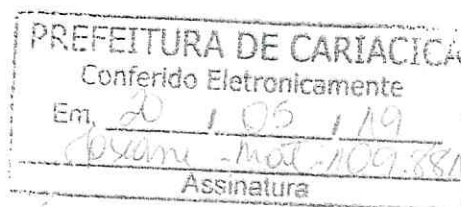 PREFEITURA DE CARIACICA
Conferido Eletronicamente
Em, 20 / 05 / 19
Joseane - Mat - 109.881
Assinatura